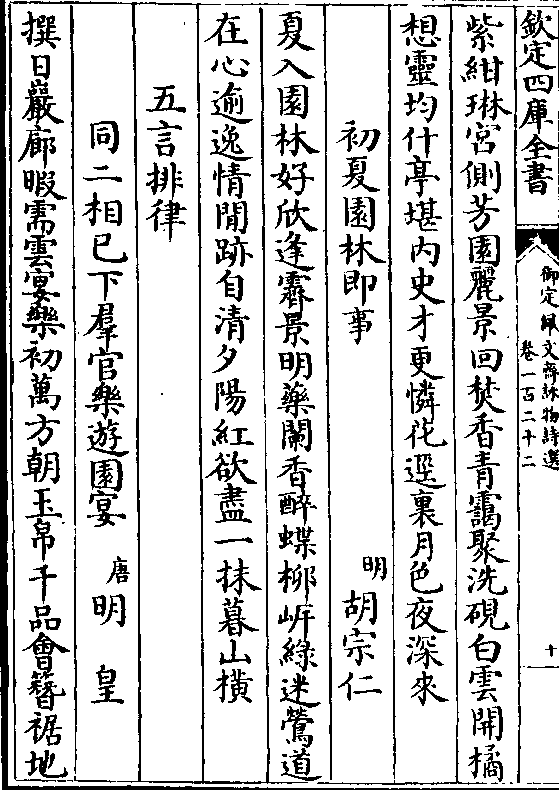 欽定四庫全書
御定佩文齋詠物詩選
卷一百二十二
十
紫紺琳宮側芳園麗景回焚香青靄聚洗硯白雲開摛
想靈均什亭堪内史才更憐花逕裏月色夜深來
初夏園林即事
明胡宗仁
夏入園林好欣逢霽景明藥闌香醉蝶柳㟁綠迷鶯道
在心逾逸情閒跡自清夕陽紅欲盡一抹暮山橫
五言排律
同二相已下羣官樂遊園宴
唐明皇
撰日巖廊暇需雲宴樂初萬方朝玉帛千品會簪裾地